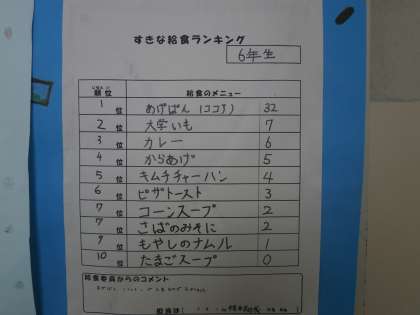 すきな給食ランキング
6年生
順位 給食のメニュー
1位 あげぱん (ココア) 32
2位 大学いも 7
3位 カレー 6
4位 からあげ 5
5位 キムチチャーハン 4
6位 ピザトースト 3
7位 コーンスープ 2
7位 さばのみそに 2
9位 もやしのナムル 1
10位 たまごスープ 0
給食委員からのコメント